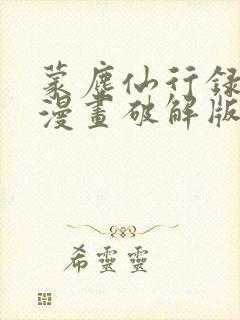 蒙塵仙行録
漫畫破解版
希靈靈